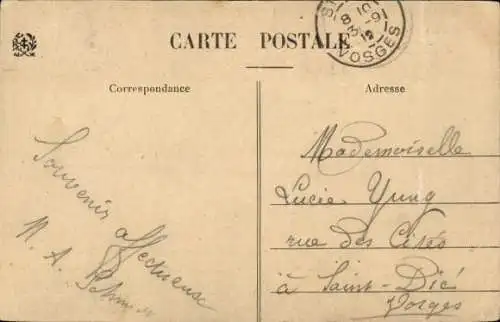 CARTE POSTALE
VOSGES
Correspondance
Adresse
Souvenir affectueux
M. A.
Mademoiselle
Lucie Yung
rue des Cités
à Saint-Dié
Vosges